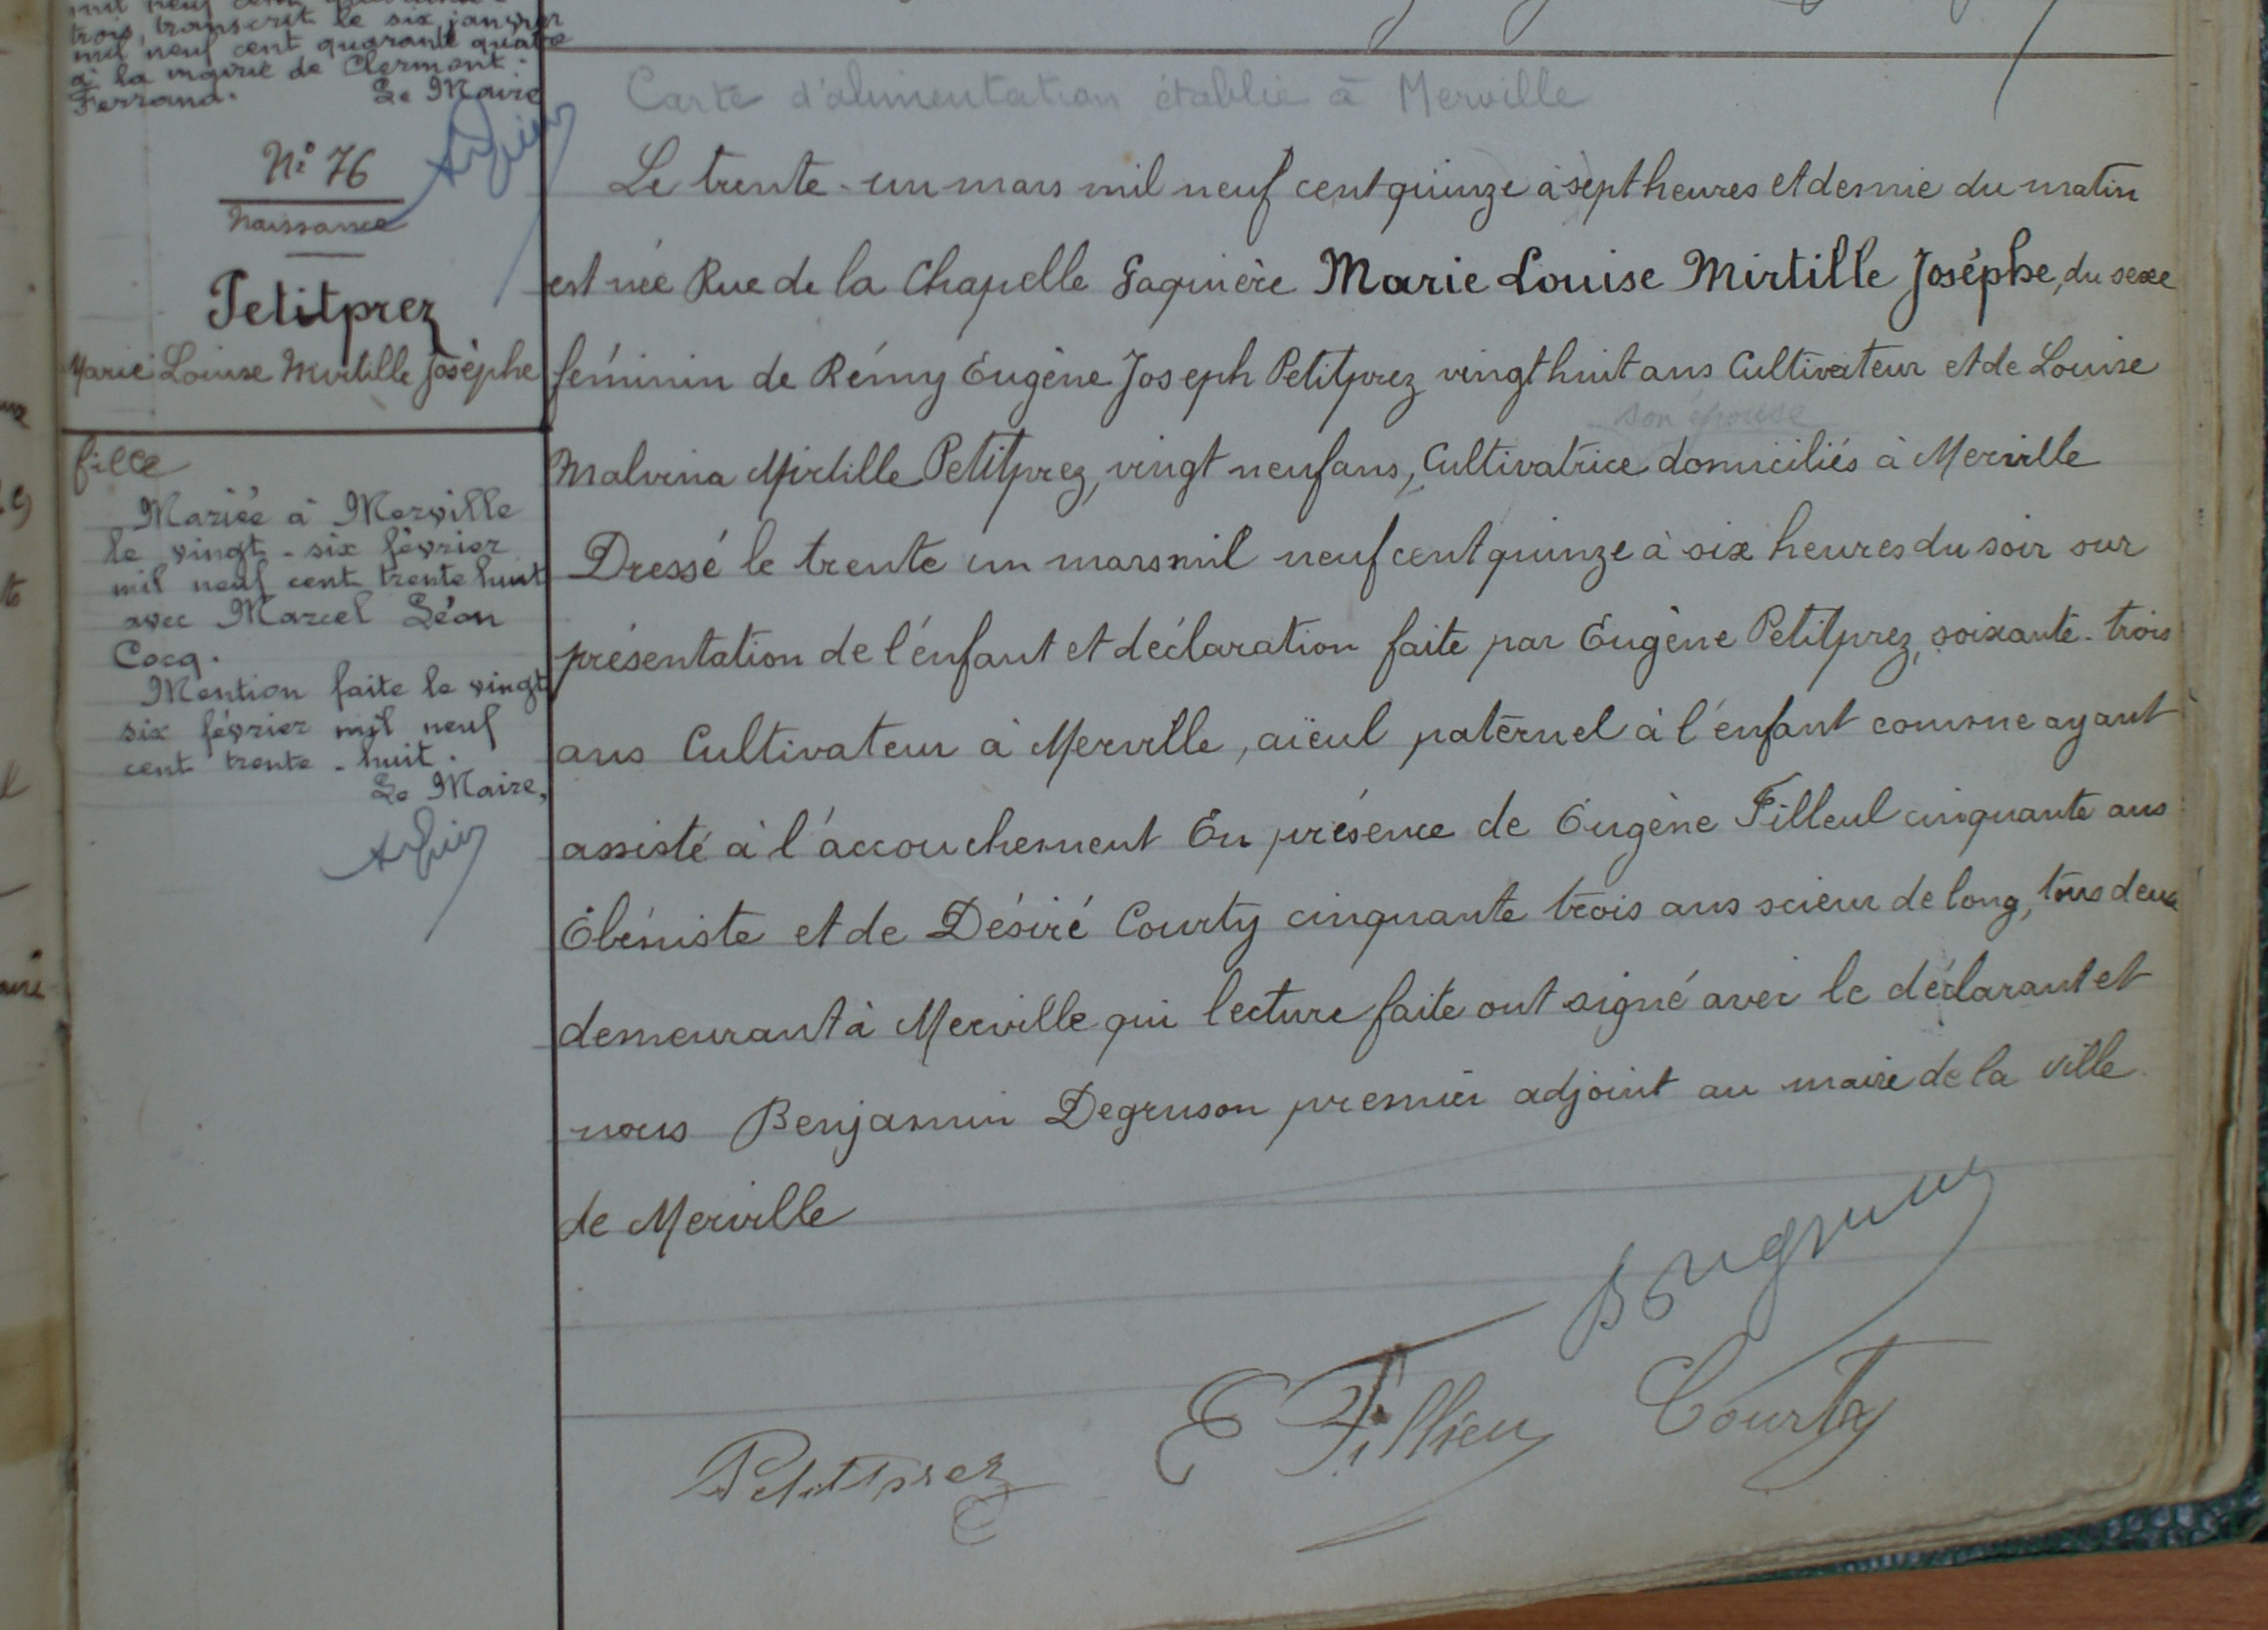 trois, transcrit le six janvier
mil neuf cent quarante quatre
à la mairie de Clermont-
Ferrand.
Le Maire
N° 76
Naissance
Petitprez
Marie Louise Mirtille Josèphe
fille
Mariée à Merville
le vingt-six février
mil neuf cent trente huit
avec Marcel Léon
Cocq.
Mention faite le vingt
six février mil neuf
cent trente-huit.
Le Maire,
Carte d'alimentation établie à Merville
Le trente-un mars mil neuf cent quinze à sept heures et demie du matin
est née Rue de la Chapelle Marie Louise Mirtille Josèphe, du sexe
féminin de Rémy Eugène Joseph Petitprez vingt huit ans Cultivateur et de Louise
son épouse
Malvina Mirtille Petitprez, vingt neuf ans, Cultivatrice domiciliés à Merville
Dressé le trente un mars mil neuf cent quinze à six heures du soir sur
présentation de l'enfant et déclaration faite par Eugène Petitprez, soixante-trois
ans Cultivateur à Merville, aïeul paternel à l'enfant comme ayant
assisté à l'accouchement En présence de Eugène Filleul cinquante ans
Ébéniste et de Désiré Courty cinquante trois ans scieur de long, tous deux
demeurant à Merville qui lecture faite ont signé avec le déclarant et
nous Benjamin Degruson premier adjoint au maire de la ville
de Merville
Petitprez
E Fillieu
Courty